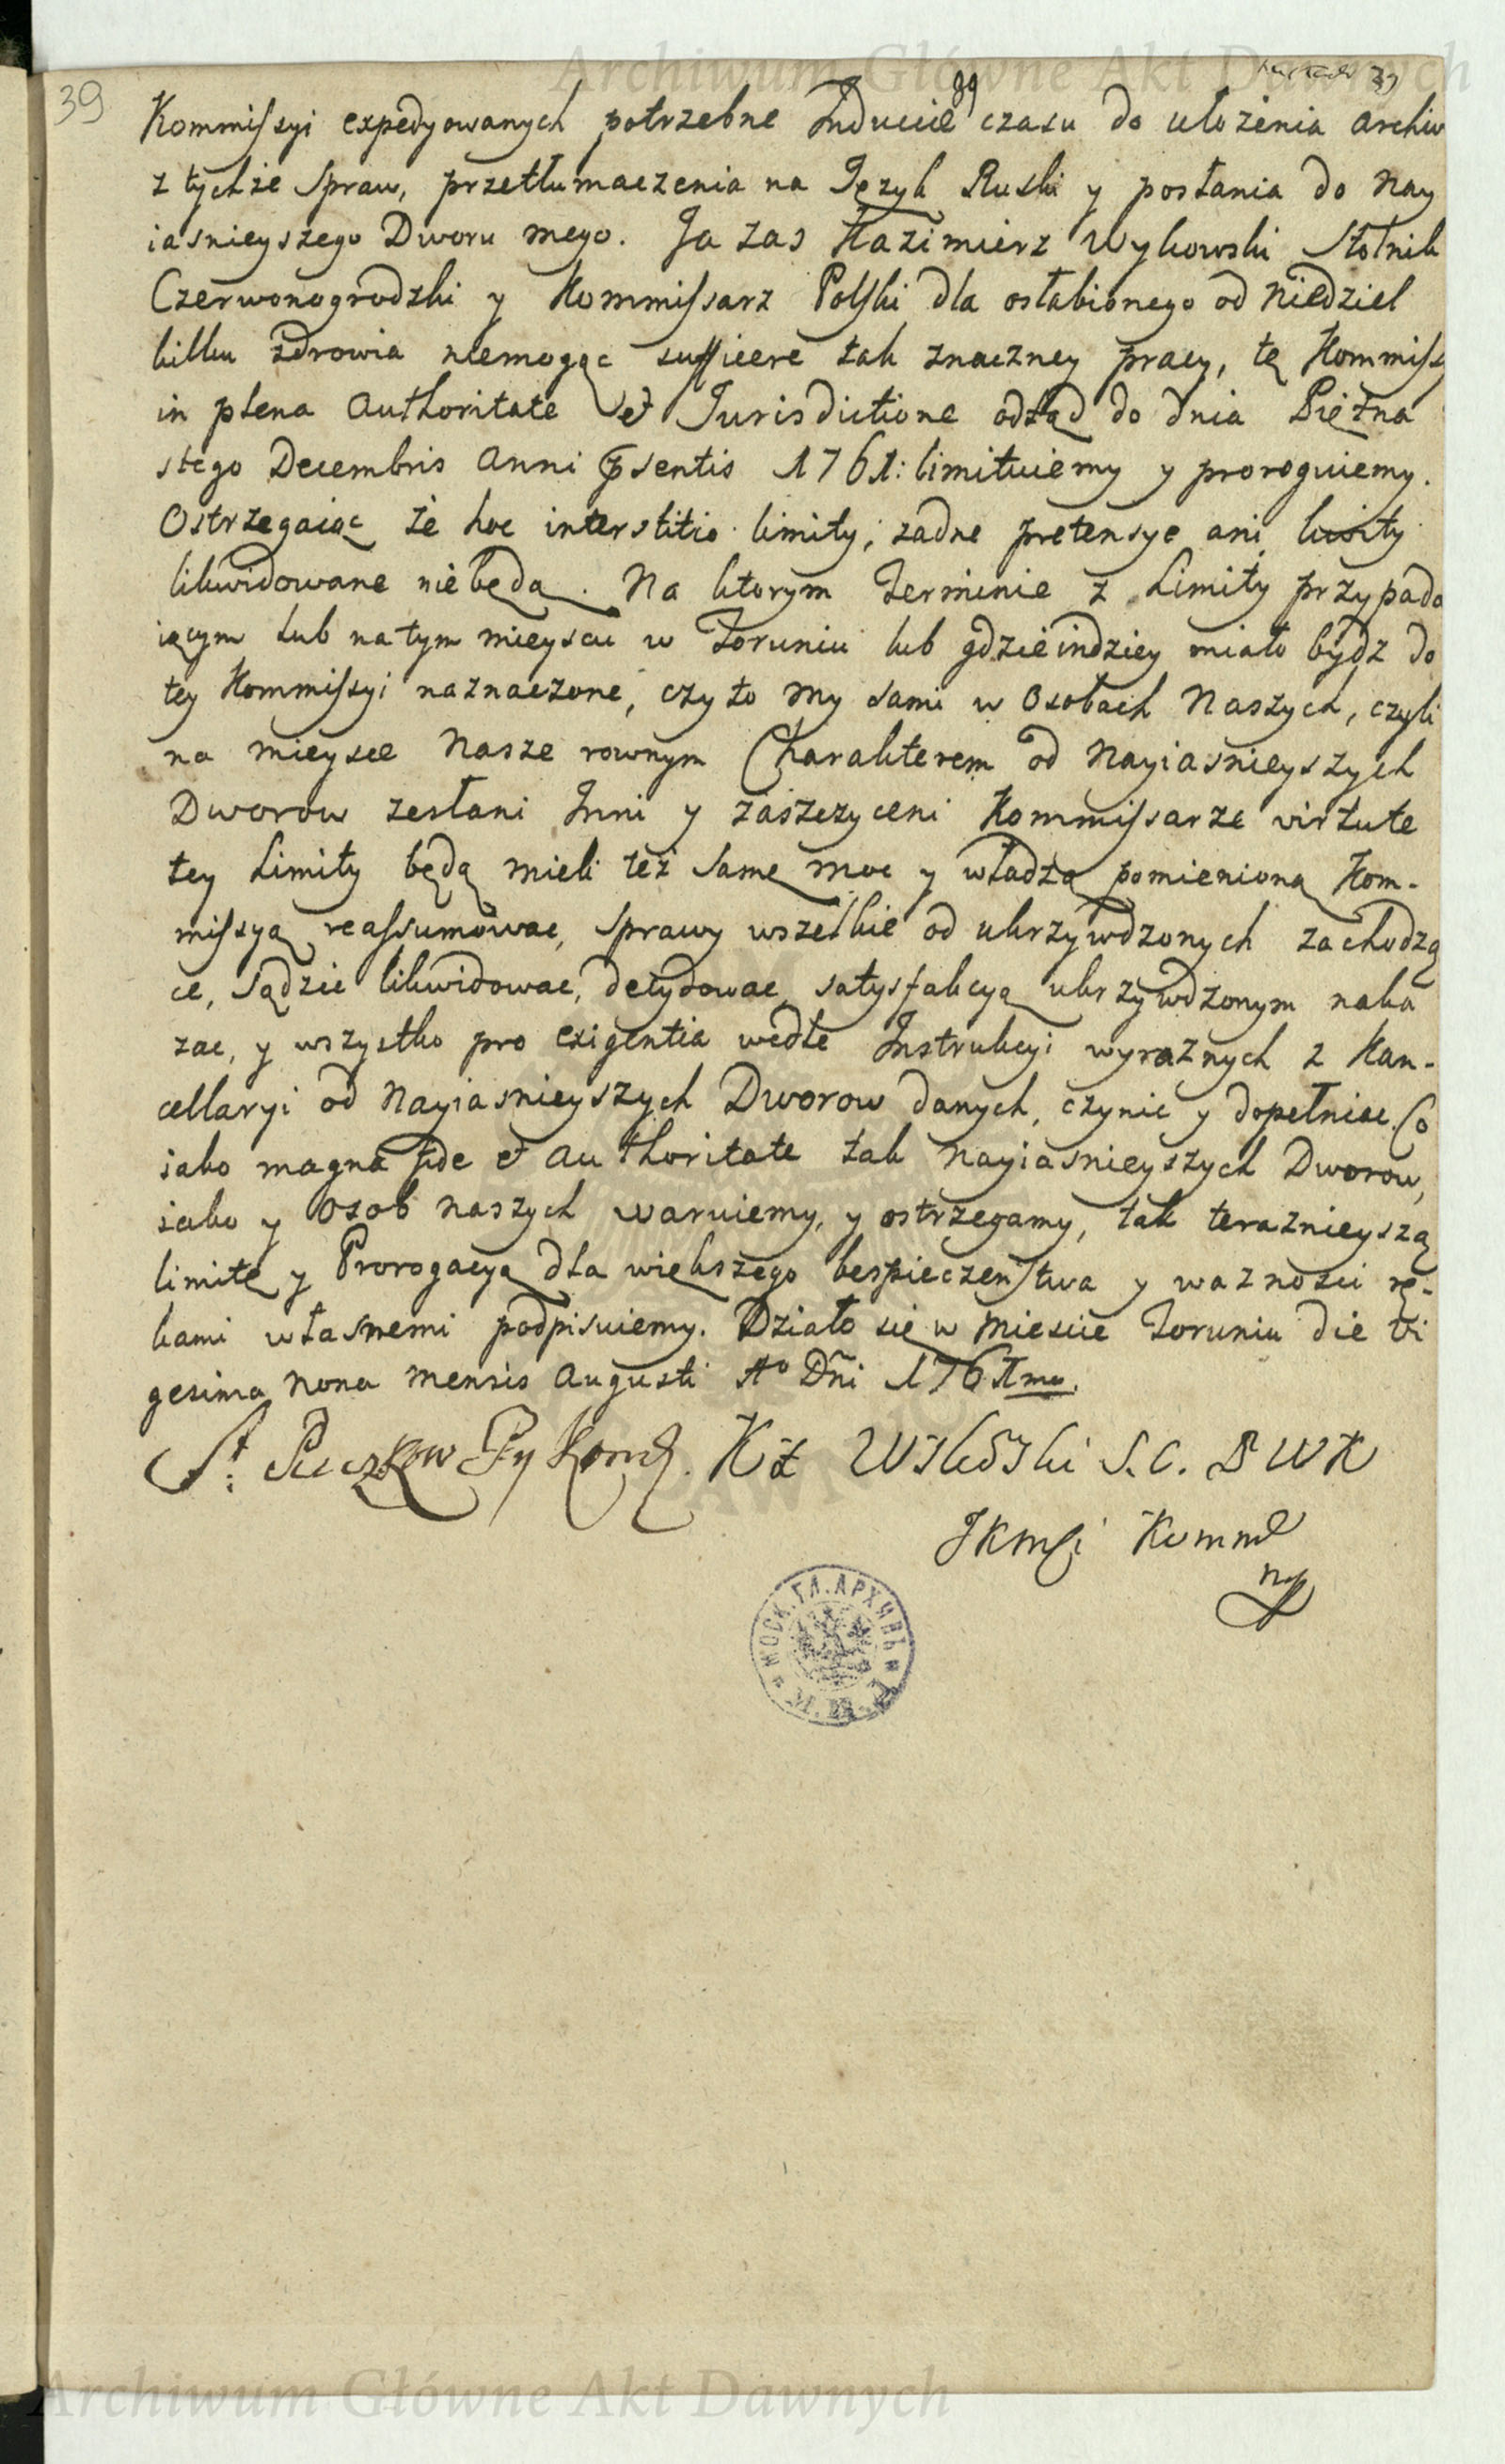 Archiwum Główne Akt Dawnych
39
39
39
Kommissyi expedyowanych potrzebne Inducie czasu do ułożenia Archiw
z tychże Spraw, przetłumaczenia na Język Ruski y posłania do Nay
iasnieyszego Dworu mego. Ja zas Kazimierz Wykowski Stolnik
Czerwonogrodzki y Kommissarz Polski dla osłabionego od Niedziel
kilku zdrowia niemogąc sufficere tak znaczney pracy, tę Kommiss
in plena Authoritate et Jurisdictione odtąd do dnia Piętna
stego Decembris Anni psentis 1761: limituiemy y proroguiemy.
Ostrzegaiąc że hoc interstitio limity, żadne pretensye ani kwity
likwidowane niebędą. Na ktorym Terminie z Limity przypada
iącym lub natym mieyscu w Toruniu lub gdzieindziey miało bydz do
tey Kommissyi naznaczone, czyto my sami w Osobach Naszych, czyli
na mieysce Nasze rownym Charakterem od Nayiasnieyszych
Dworow zesłani Inni y zaszczyceni Kommissarze virtute
tey Limity będą mieli też samę moc y władzą pomienioną Kom-
missyą reassumowac, Sprawy wszelkie od ukrzywdzonych zachodzą
ce, Sądzic likwidowac, decydowac, satysfakcyą ukrzywdzonym naka
zac, y wszystko pro exigentia wedle Instrukcyi wyraznych z Kan-
cellaryi od Nayiasnieyszych Dworow danych, czynic y dopełniac. Co
iako magna fide et Authoritate tak Nayiasnieyszych Dworow,
iako y Osob Naszych waruiemy, y ostrzegamy, tak teraznieyszą
limitę y Prorogacyą dla większego bespieczenstwa y waznosci rę-
kami własnemi podpisuiemy. Działo się w Miescie Toruniu die Vi
gesima Nona Mensis Augusti Ao Dni 1761mo.
S. C. B W K
JKMsi Komm
mp
МОСК. ГЛ. АРХИВЪ
М. И. Д.
Archiwum Główne Akt Dawnych